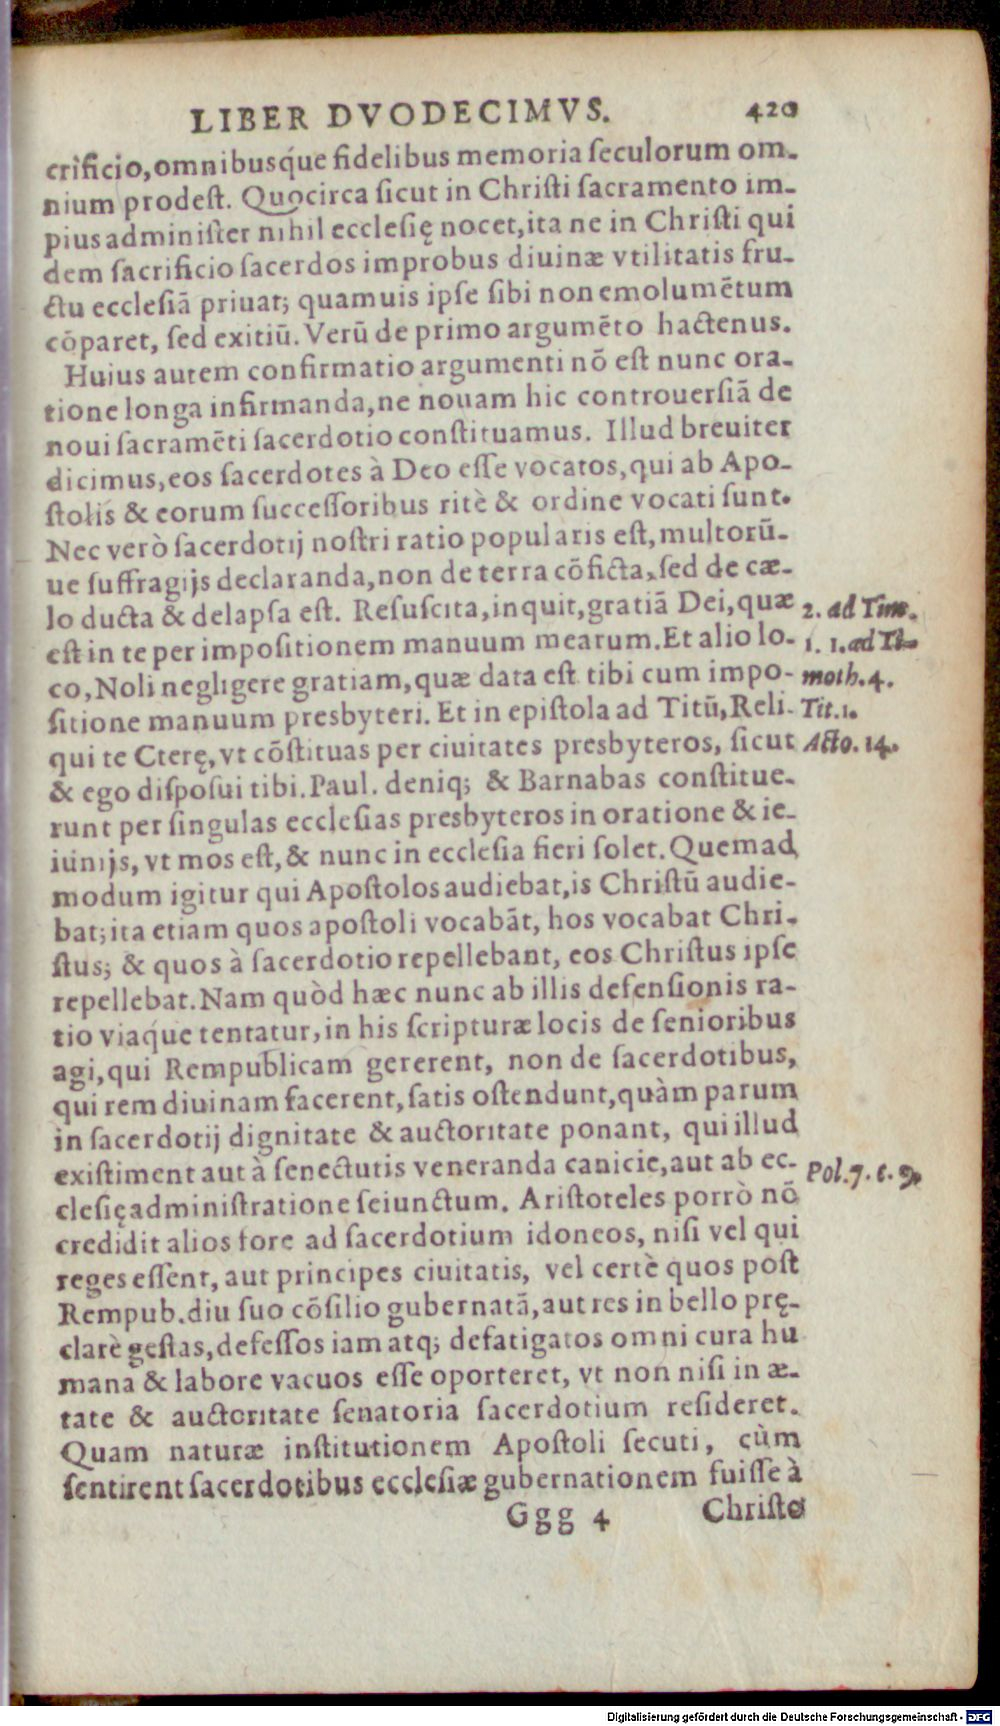 LIBER DVODECIMVS. 420
crificio, omnibusq́ue fidelibus memoria ſeculorum om-
nium prodeſt. Quocirca ſicut in Chriſti ſacramento im-
pius adminiſter nihil eccleſię nocet, ita ne in Chriſti qui
dem ſacrificio ſacerdos improbus diuinæ vtilitatis fru-
ctu eccleſiã priuat; quamuis ipſe ſibi non emolumẽtum
cõparet, ſed exitiũ. Verũ de primo argumẽto hactenus.
Huius autem confirmatio argumenti nõ eſt nunc ora-
tione longa infirmanda, ne nouam hic controuerſiã de
noui ſacramẽti ſacerdotio conſtituamus. Illud breuiter
dicimus, eos ſacerdotes à Deo eſſe vocatos, qui ab Apo-
ſtolis & eorum ſucceſſoribus ritè & ordine vocati ſunt.
Nec verò ſacerdotij noſtri ratio popularis eſt, multorũ-
ue ſuffragijs declaranda, non de terra cõficta, ſed de cæ-
lo ducta & delapſa eſt. Reſuſcita, inquit, gratiã Dei, quæ 2. ad Tim.
eſt in te per impoſitionem manuum mearum. Et alio lo- 1. 1. ad Ti-
co, Noli negligere gratiam, quæ data eſt tibi cum impo- moth. 4.
ſitione manuum presbyteri. Et in epiſtola ad Titũ, Reli- Tit. 1.
qui te Cterę, vt cõſtituas per ciuitates presbyteros, ſicut Acto. 14.
& ego diſpoſui tibi. Paul. deniq; & Barnabas conſtitue-
runt per ſingulas eccleſias presbyteros in oratione & ie-
iunijs, vt mos eſt, & nunc in eccleſia fieri ſolet. Quemad
modum igitur qui Apoſtolos audiebat, is Chriſtũ audie-
bat; ita etiam quos apoſtoli vocabãt, hos vocabat Chri-
ſtus; & quos à ſacerdotio repellebant, eos Chriſtus ipſe
repellebat. Nam quòd hæc nunc ab illis defenſionis ra-
tio viaq́ue tentatur, in his ſcripturæ locis de ſenioribus
agi, qui Rempublicam gererent, non de ſacerdotibus,
qui rem diuinam facerent, ſatis oſtendunt, quàm parum
in ſacerdotij dignitate & auctoritate ponant, qui illud
exiſtiment aut à ſenectutis veneranda canicie, aut ab ec- Pol. 7. c. 9.
cleſię adminiſtratione ſeiunctum. Ariſtoteles porrò nõ
credidit alios fore ad ſacerdotium idoneos, niſi vel qui
reges eſſent, aut principes ciuitatis, vel certè quos poſt
Rempub. diu ſuo cõſilio gubernatã, aut res in bello prę-
clarè geſtas, defeſſos iam atq; defatigatos omni cura hu
mana & labore vacuos eſſe oporteret, vt non niſi in æ-
tate & auctoritate ſenatoria ſacerdotium reſideret.
Quam naturæ inſtitutionem Apoſtoli ſecuti, cùm
ſentirent ſacerdotibus eccleſiæ gubernationem fuiſſe à
Ggg 4 Chriſto
Digitalisierung gefördert durch die Deutsche Forschungsgemeinschaft - DFG